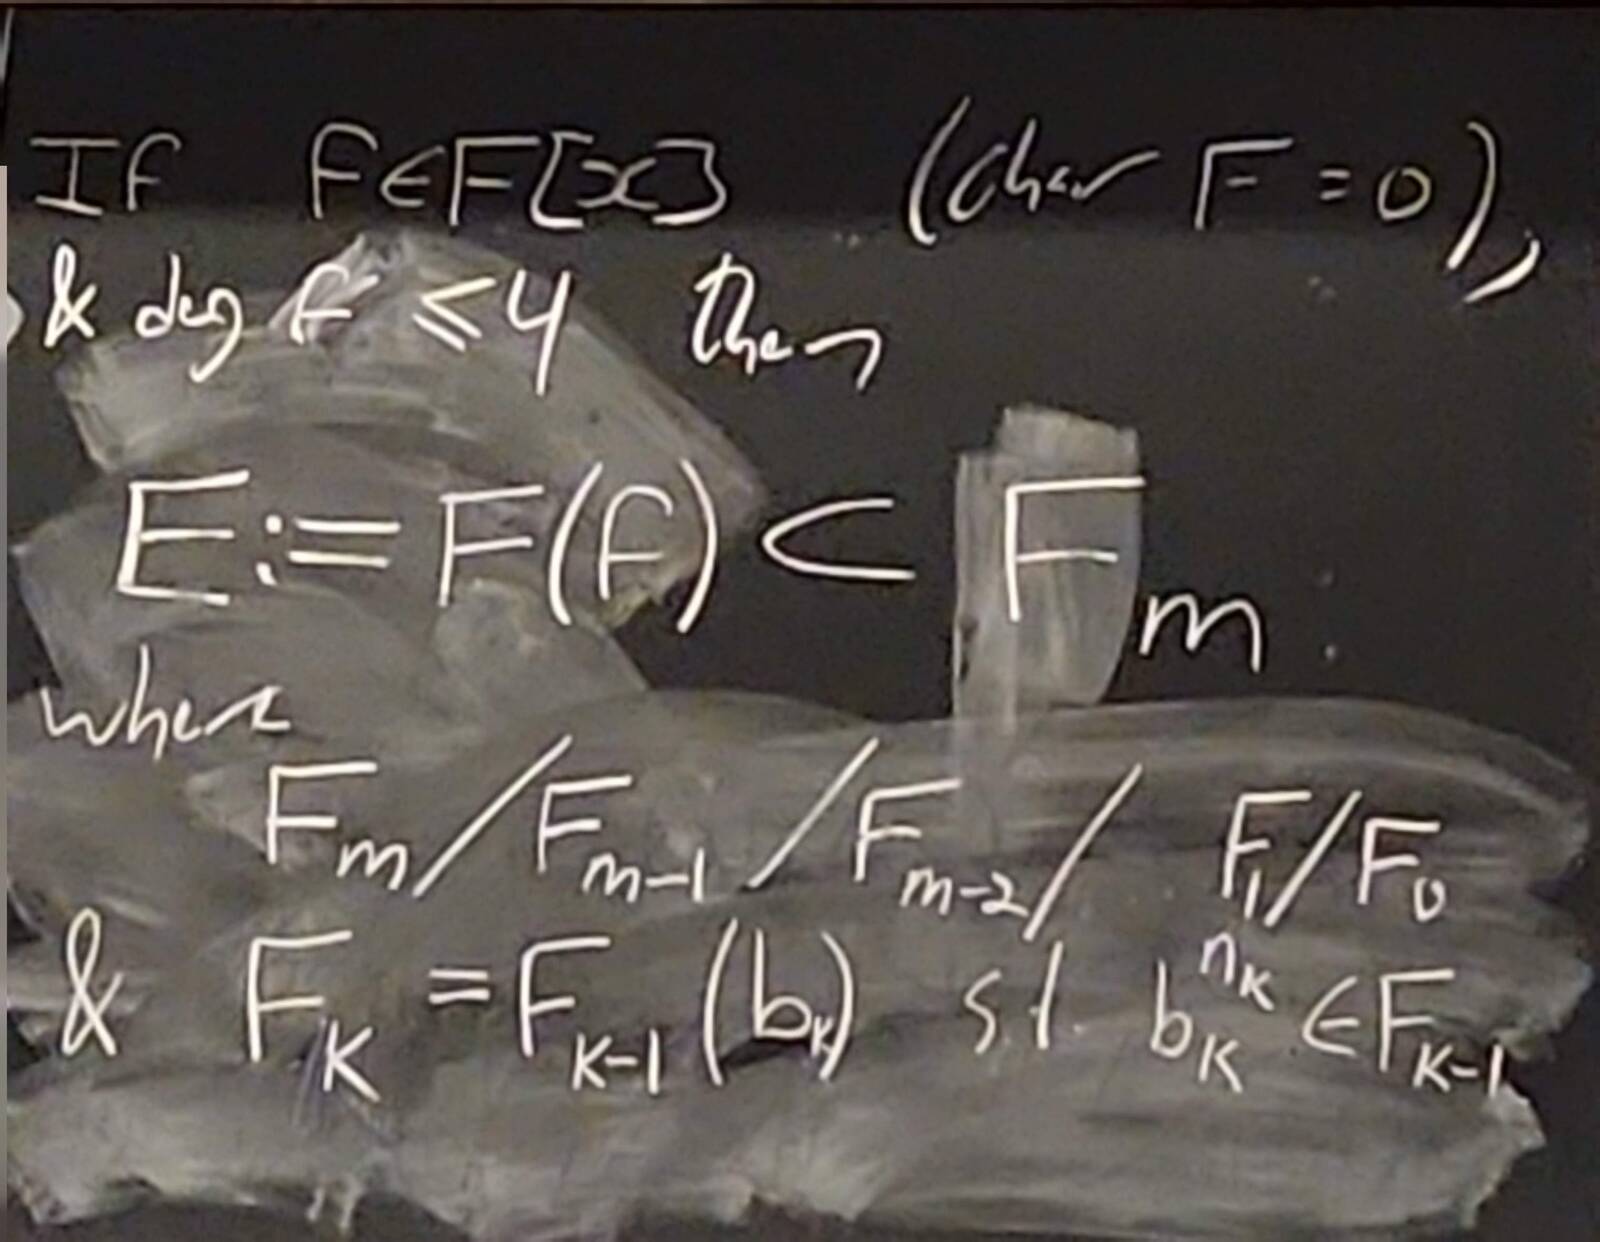 If f∈F[x] (char F=0),
& deg f ≤4 then
E:=F(f) ⊂ F_m
where
F_m/F_{m-1}/F_{m-2}/ F_1/F_0
& F_K = F_{K-1}(b_K) s.t. b_K^{n_K} ∈ F_{K-1}